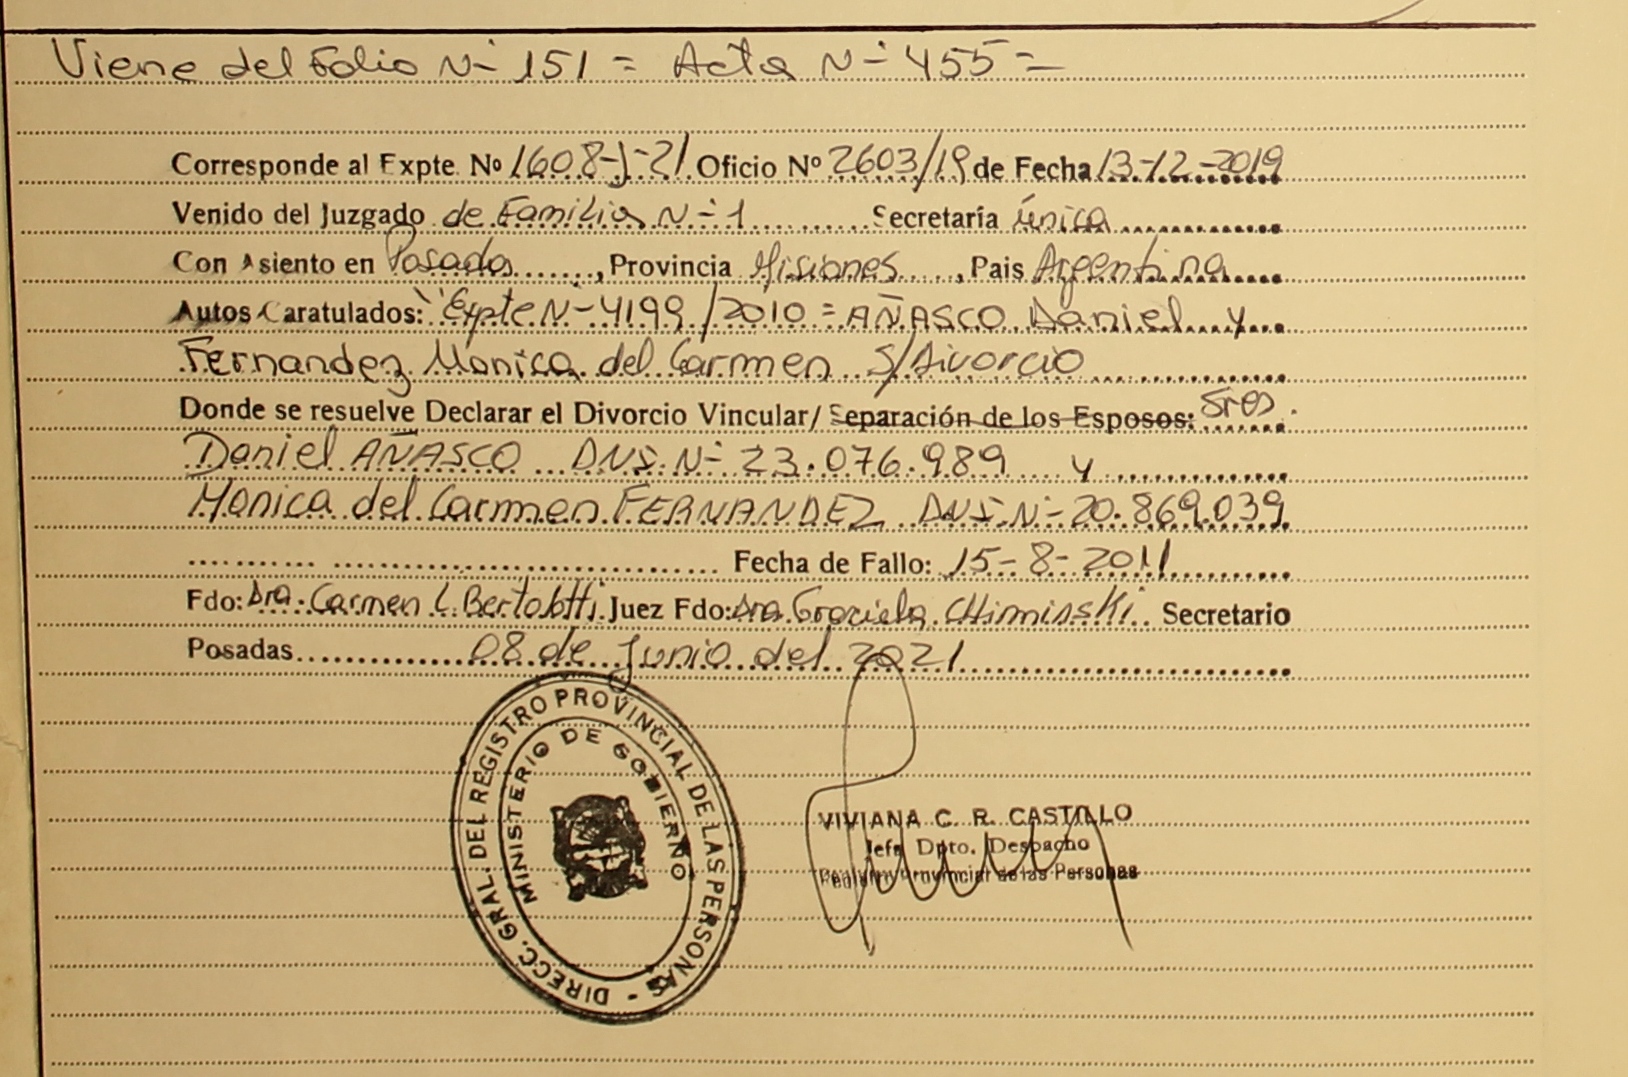 Viene del Folio N- 151 = Acta N- 455 =
Corresponde al Expte. Nº 1608-J-21 Oficio Nº 2603/19 de Fecha 13-12-2019
Venido del Juzgado de Familia N- 1 Secretaría única
Con Asiento en Posadas, Provincia Misiones, Pais Argentina
Autos Caratulados: "Expte N- 4199/2010 = AÑASCO Daniel y
Fernandez Monica del Carmen S/Divorcio
Donde se resuelve Declarar el Divorcio Vincular/ Separación de los Esposos: Sres.
Daniel AÑASCO DNI. N- 23.076.989 y
Monica del Carmen FERNANDEZ DNI. N- 20.869.039
Fecha de Fallo: 15-8-2011
Fdo: Dra. Carmen L. Bertolotti Juez Fdo: Dra Graciela CHiminski Secretario
Posadas 08 de Junio del 2021
DIRECC. GRAL. DEL REGISTRO PROVINCIAL DE LAS PERSONAS -
MINISTERIO DE GOBIERNO
VIVIANA C. R. CASTILLO
Jefa Dpto. Despacho
Registro Provincial de las Personas